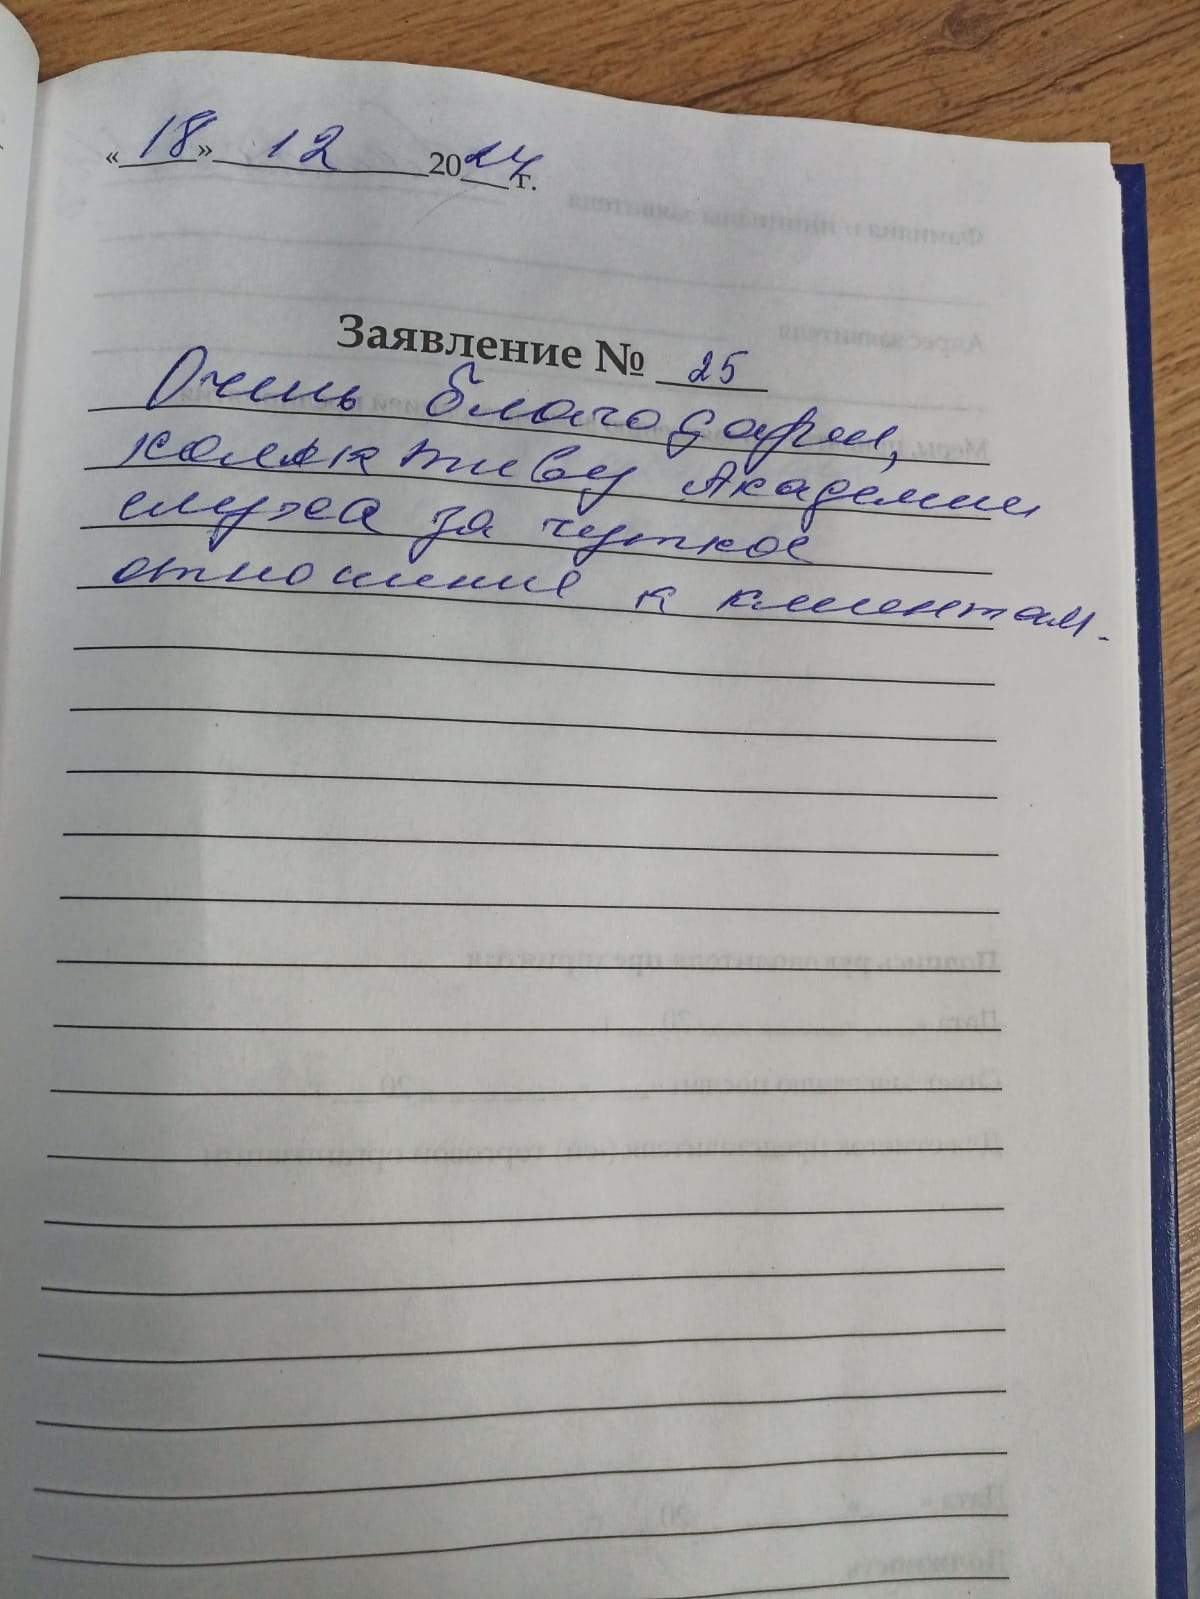 «18» 12 2024 г.
Заявление № 25
Очень благодарен,
коллективу Академии
слуха за чуткое
отношение к клиентам.